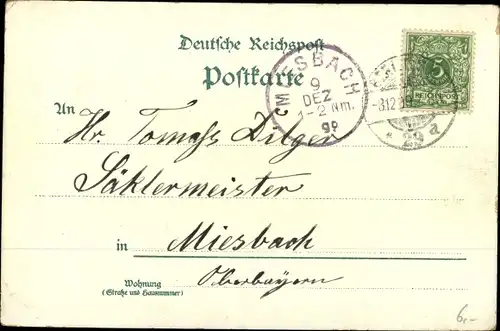 Deutsche Reichspost
Postkarte
MIESBACH
9
DEZ
1-2 Nm.
99
5
REICHSPOST
8.12.
a
An
Hr. Tomass Dilger
Säklermeister
in Miesbach
Oberbayern
Wohnung
(Straße und Hausnummer)
6,-